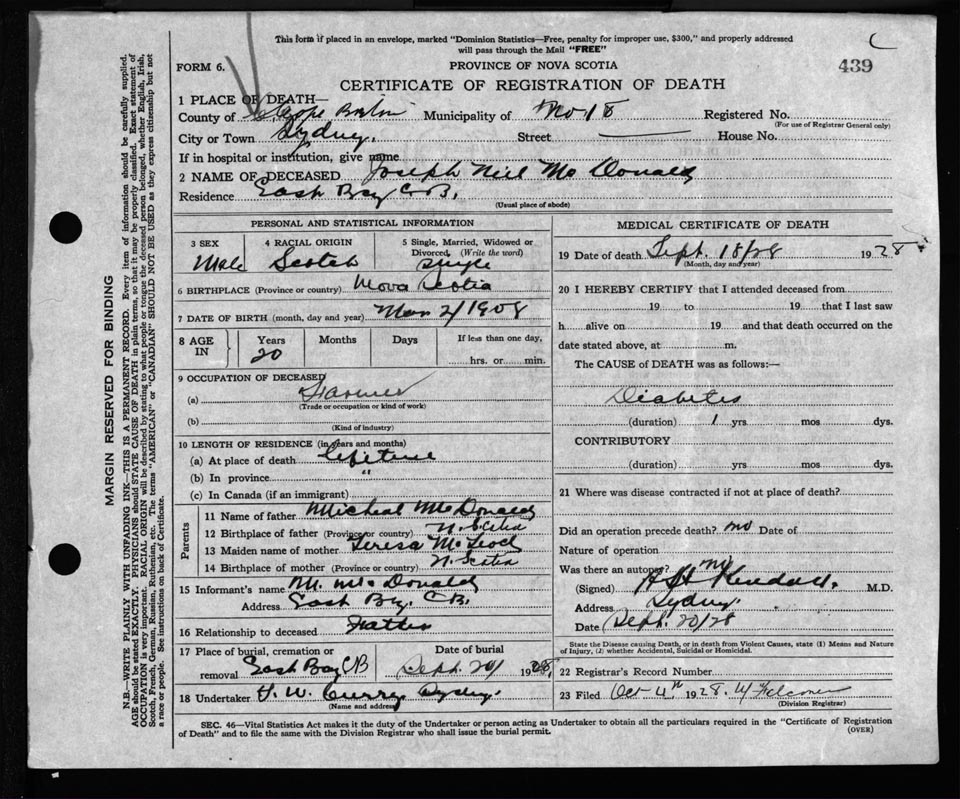 This form if placed in an envelope, marked "Dominion Statistics—Free, penalty for improper use, $300," and properly addressed
will pass through the Mail "FREE"
FORM 6.
PROVINCE OF NOVA SCOTIA
439
CERTIFICATE OF REGISTRATION OF DEATH
1 PLACE OF DEATH—
County of Cape Breton Municipality of No 18 Registered No.
(For use of Registrar General only)
City or Town Sydney. Street House No.
If in hospital or institution, give name
2 NAME OF DECEASED Joseph Neil McDonald
Residence East Bay C.B.
(Usual place of abode)
PERSONAL AND STATISTICAL INFORMATION
3 SEX Male
4 RACIAL ORIGIN Scotch
5 Single, Married, Widowed or Divorced (Write the word) Single
6 BIRTHPLACE (Province or country) Nova Scotia
7 DATE OF BIRTH (month, day and year) 1908
8 AGE IN Years 20 Months Days If less than one day, hrs. or min.
9 OCCUPATION OF DECEASED
(a) Farmer
(Trade or occupation or kind of work)
(b)
(Kind of industry)
10 LENGTH OF RESIDENCE (in years and months)
(a) At place of death Lifetime
(b) In province "
(c) In Canada (if an immigrant)
Parents
11 Name of father Micheal McDonald
12 Birthplace of father (Province or country) N. Scotia
13 Maiden name of mother Teresa McLeod
14 Birthplace of mother (Province or country) N. Scotia
15 Informant's name M. McDonald
Address East Bay. C.B.
16 Relationship to deceased Father
17 Place of burial, cremation or removal East Bay CB
Date of burial Sept. 20/ 1928.
18 Undertaker Curry Sydney.
(Name and address)
MEDICAL CERTIFICATE OF DEATH
19 Date of death Sept. 18/28 1928
(Month, day and year)
20 I HEREBY CERTIFY that I attended deceased from
19 to 19 that I last saw
h alive on 19 and that death occurred on the
date stated above, at m.
The CAUSE of DEATH was as follows:—
Diabetes
(duration) 1 yrs mos dys.
CONTRIBUTORY
(duration) yrs mos dys.
21 Where was disease contracted if not at place of death?
Did an operation precede death? no Date of
Nature of operation
Was there an autopsy? no
(Signed) Kendall. M.D.
Address Sydney.
Date Sept. 20/28
State the Disease causing Death, or in death from Violent Causes, state (1) Means and Nature
of Injury, (2) whether Accidental, Suicidal or Homicidal.
22 Registrar's Record Number
23 Filed Oct 4th 1928.
(Division Registrar)
SEC. 46—Vital Statistics Act makes it the duty of the Undertaker or person acting as Undertaker to obtain all the particulars required in the "Certificate of Registration
of Death" and to file the same with the Division Registrar who shall issue the burial permit.
(OVER)
MARGIN RESERVED FOR BINDING
N.B.—WRITE PLAINLY, WITH UNFADING INK—THIS IS A PERMANENT RECORD. Every item of information should be carefully supplied.
AGE should be stated EXACTLY. PHYSICIANS should STATE CAUSE OF DEATH in plain terms, so that it may be properly classified. Exact statement of
OCCUPATION is very important. RACIAL ORIGIN will be described by stating to what people or tongue the deceased person belonged, whether English, Irish,
Scotch, French, German, Russian, Ruthenian, etc. The terms "AMERICAN" or "CANADIAN" SHOULD NOT BE USED as they express citizenship but not
a race or people. See instructions on back of Certificate.